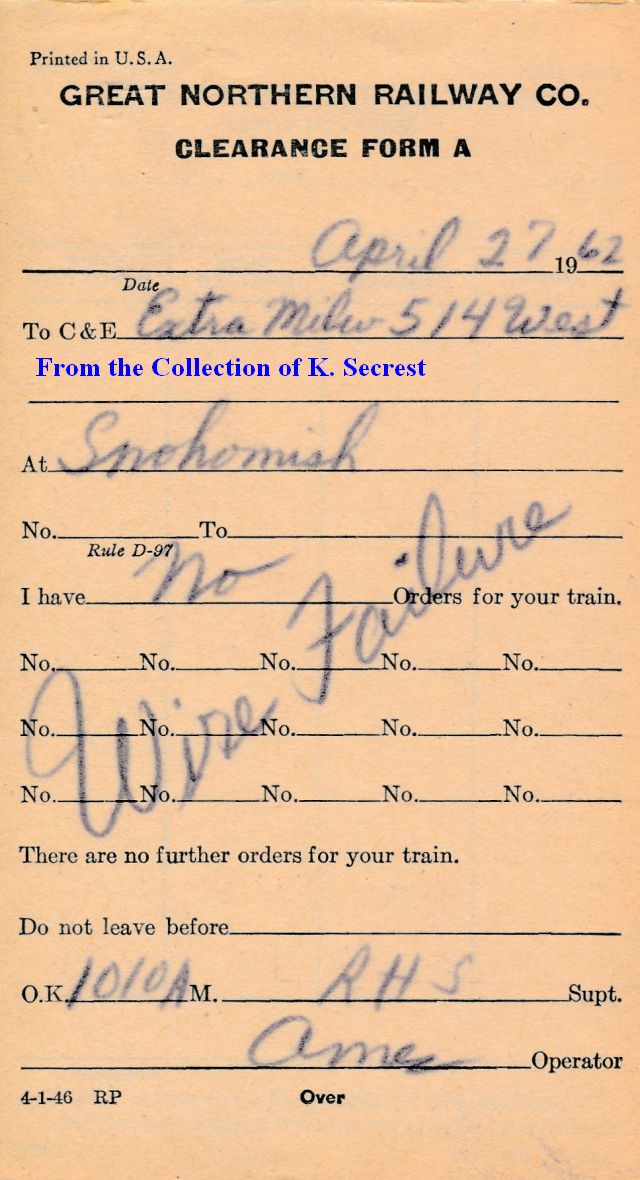 Printed in U.S.A.
GREAT NORTHERN RAILWAY CO.
CLEARANCE FORM A
April 27 1962
Date
To C & E Extra Milw 514 West
From the Collection of K. Secrest
At Snohomish
No. To
Rule D-97
I have No Orders for your train.
Wire Failure
No. No. No. No. No.
No. No. No. No. No.
No. No. No. No. No.
There are no further orders for your train.
Do not leave before
O.K. 1010 A M. RHS Supt.
Ames Operator
4-1-46 RP Over